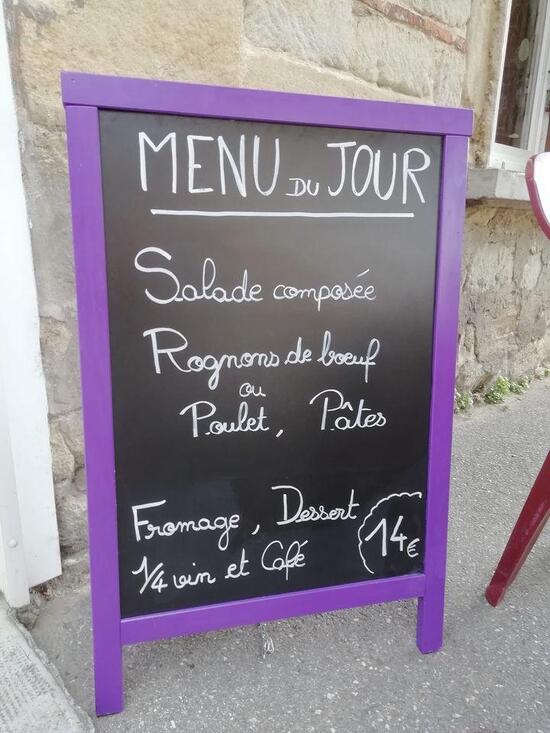 MENU DU JOUR
Salade composée
Rognons de boeuf
ou
Poulet, Pâtes
Fromage, Dessert
1/4 vin et Café
14€